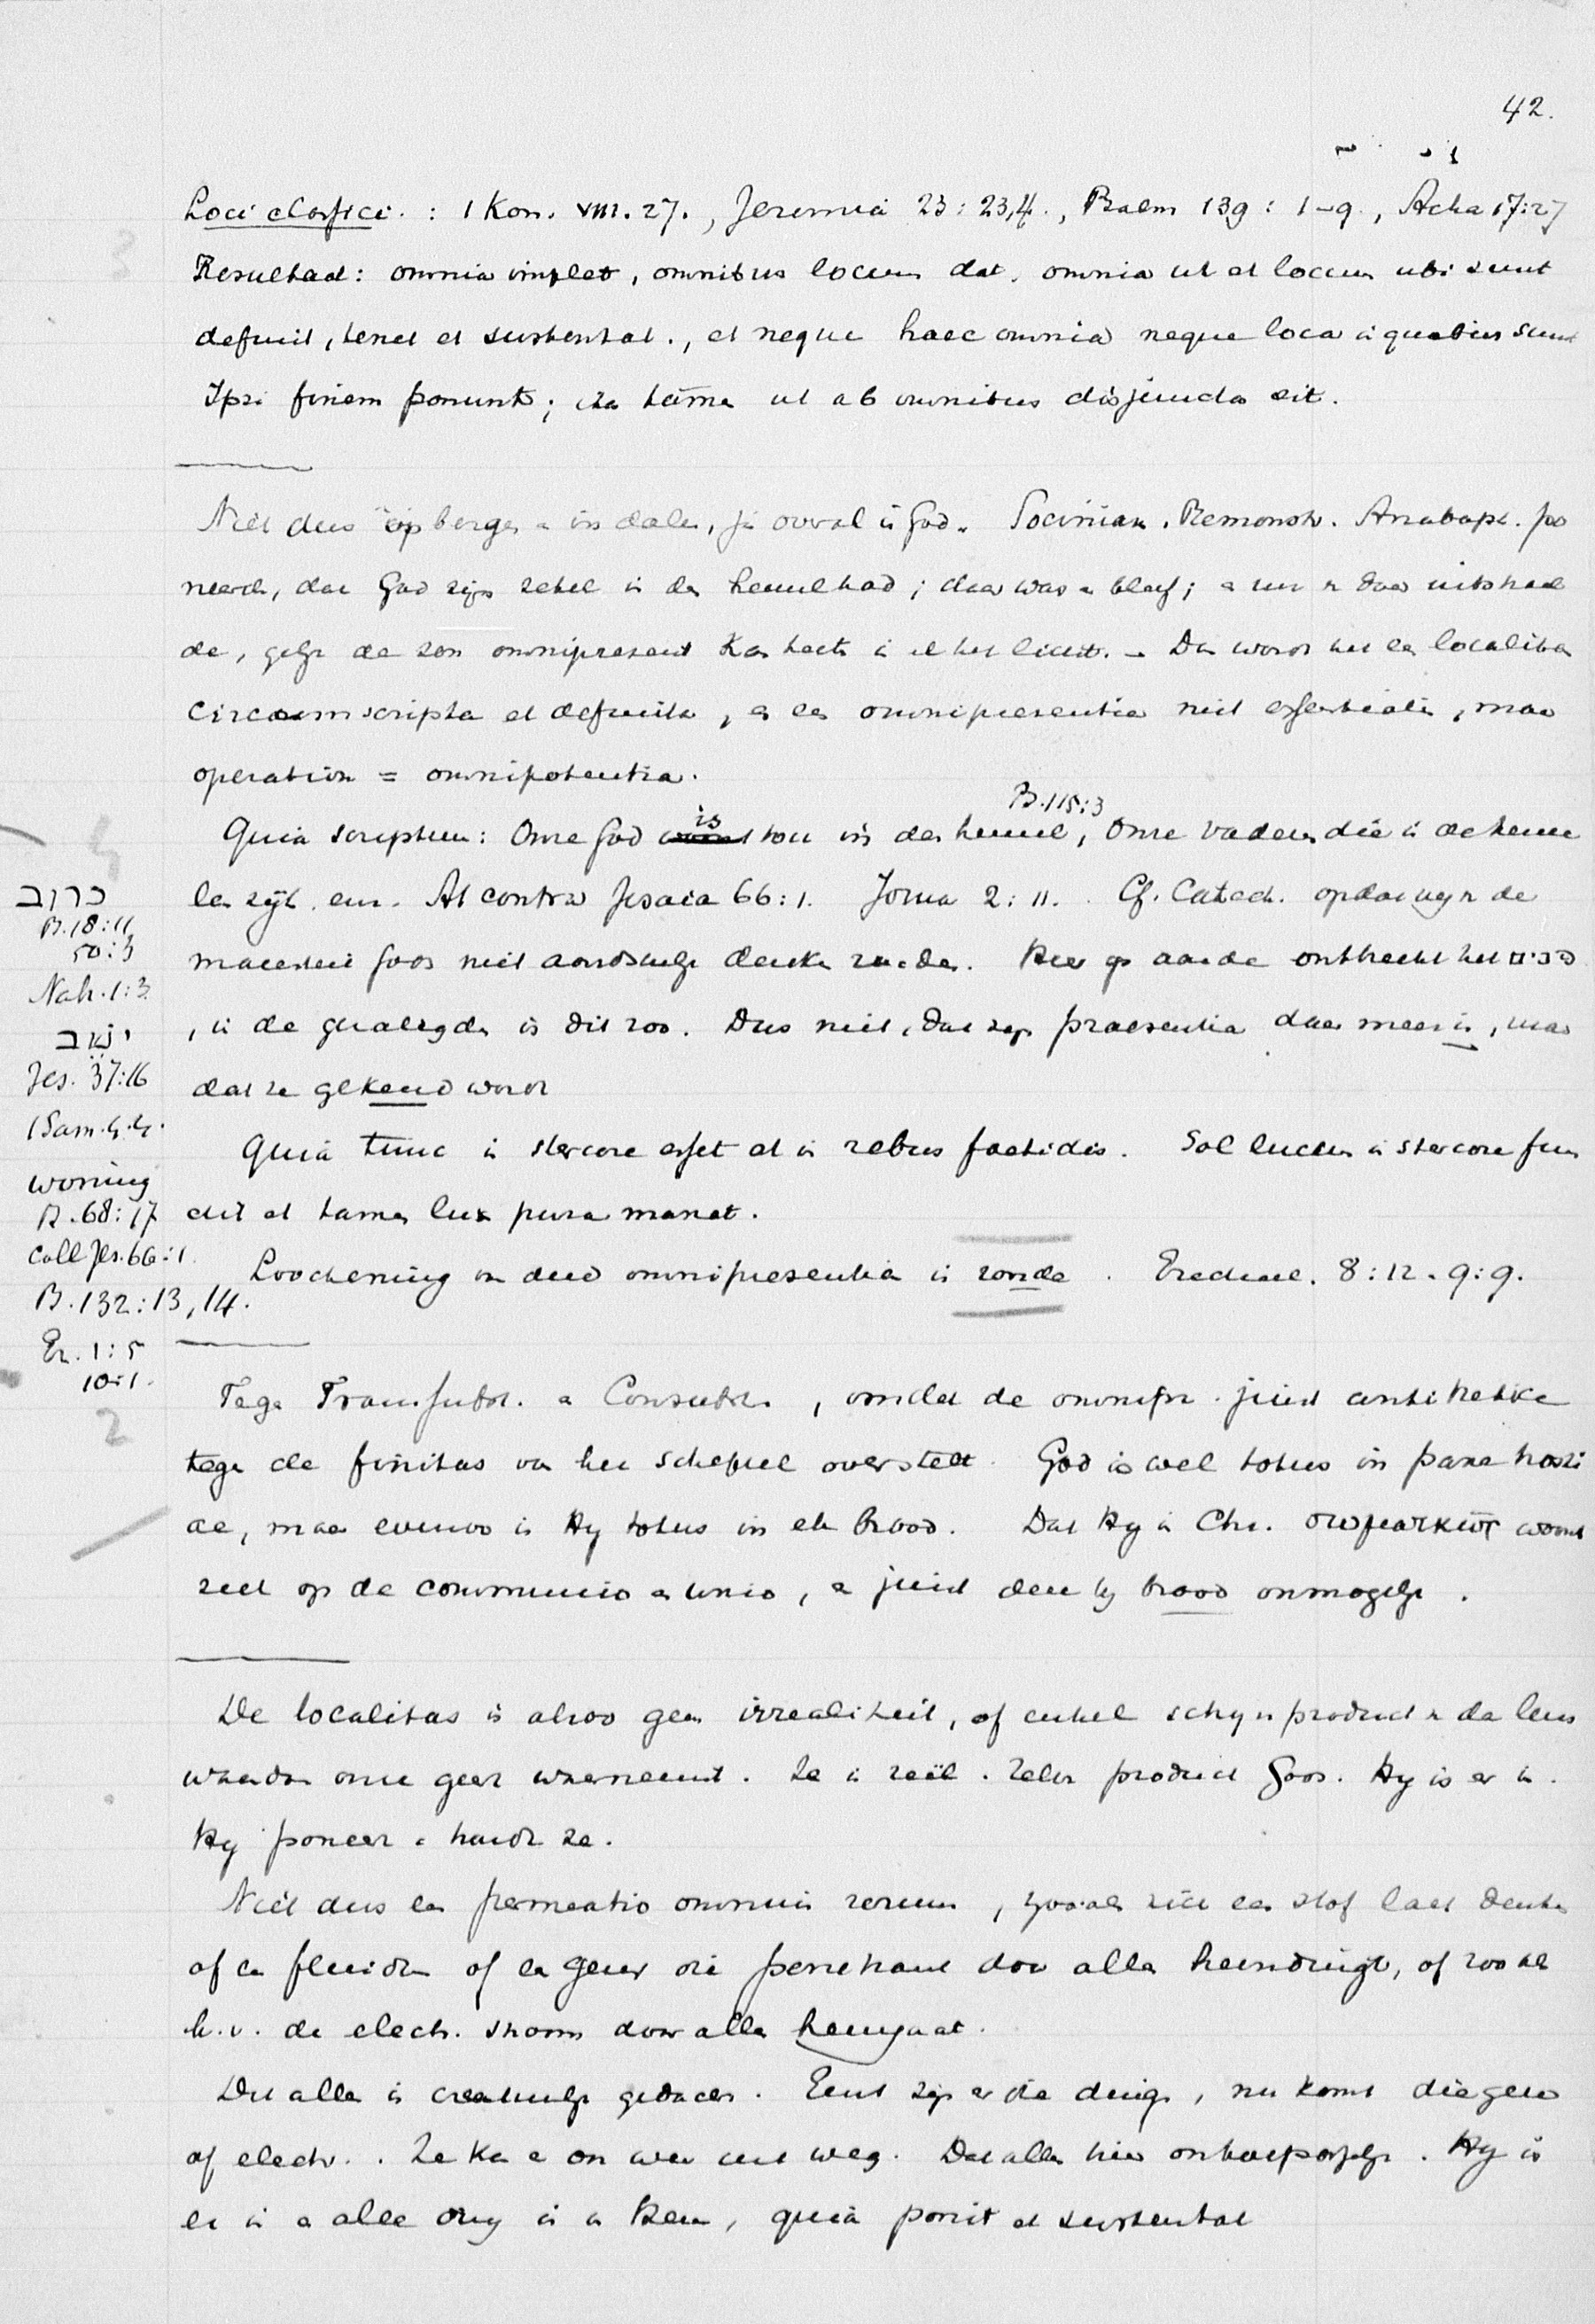 42.
Loci classici. : 1 Kon. VIII. 27., Jeremia 23 : 23,4., Psalm 139 : 1–9., Acta 17:27
Resultaat: omnia implet, omnibus locum dat, omnia ut et locum ubi sunt
definit, tenet et sustentat., et neque haec omnia neque loca in quibus sunt
Ipsi finem ponunt; ita tamen ut ab omnibus disjuncta sit.
Niet dus op berge in dale, ja overal is God. Socinian. Remonstr. Anabapt. po
neerde, dat God zijn zetel in den hemel had; daar was en bleef; en daar uitstraal
de, gelijk de zon omnipresent kan heeten in het licht. – Dan wordt het een localitas
circumscripta et definita, en een omnipresentia niet essentialis, maar
operation = omnipotentia.
Ps. 115:3
Quia scriptum: Onze God is tou in den hemel, Onze Vader die in de heme
len zijt. enz. At contra Jesaia 66:1. Jozua 2:11. Cf. Catech. opdat wij de
majesteit Gods niet aardschelijk denken zouden. Hier op aarde ontbreekt het
, in de is dit zoo. Dus niet, dat zijn praesentia daar meer is, maar
dat ze gekend wordt
Quia tunc in stercore esset et in rebus foetidis. Sol lucem in stercore fun
dit et tamen lux pura manet.
Loochening van deze omnipresentia is zonde. Ezechiel. 8:12. 9:9.
כרוב
Ps. 18:11
50:3
Nah. 1:3
ישב
Jes. 37:16
1 Sam. 4.4.
woning
Ps. 68:17
Coll Jes. 66:1.
Ps. 132:13,14.
Ez. 1:5
10:1.
2
Tegen Transsubst. en Consubst., omdat de omnipr. juist antithetice
tegen de finitas van het schepsel overstelt. God is wel totus in pane hosti
ae, maar evenzoo is Hy totus in elk brood. Dat Hy in Chr. σωματικῶς woont
ziet op de communio en unio, en juist deze by brood onmogelijk.
De localitas is alzoo geen irrealiteit, of enkel schynproduct van de lens
waardoor onze geest waarneemt. Ze is reël. Zelve product Gods. Hy is er in.
Hy poneert en houdt ze.
Niet dus een permeatio omnium rerum, zooals zich een stof laat denken
of een fluide of een geur die penetrant door alles heendringt, of zooals
b.v. de electr. stroom door alles heengaat.
Dit alles is creatuurlijk gedacht. Eerst zijn er die dingen, nu komt die geur
of electr.. Ze kan er ook weer uit weg. Dat alles hier ontoepasselijk. Hy is
er in en alle ding is in Hem, quia ponit et sustentat